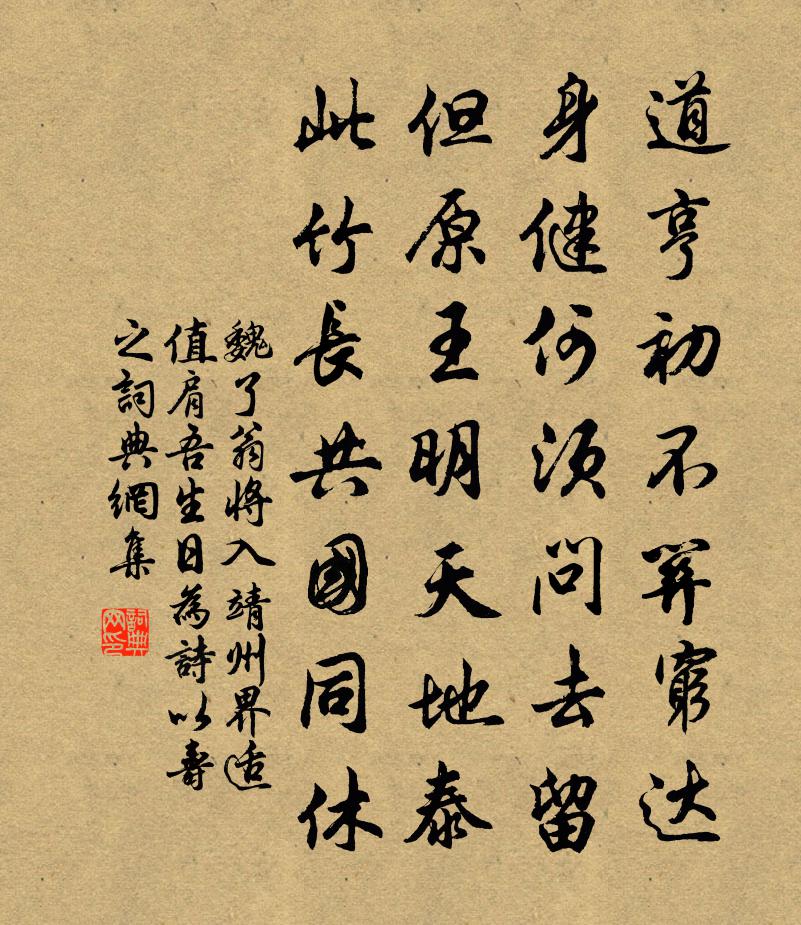 道亨初不筭窮达
身健何須問去留
但原王明天地泰
此竹長共國同休
魏了翁將入靖州界适
值肩吾生日為詩以壽
之詞典網集
詞典
网印